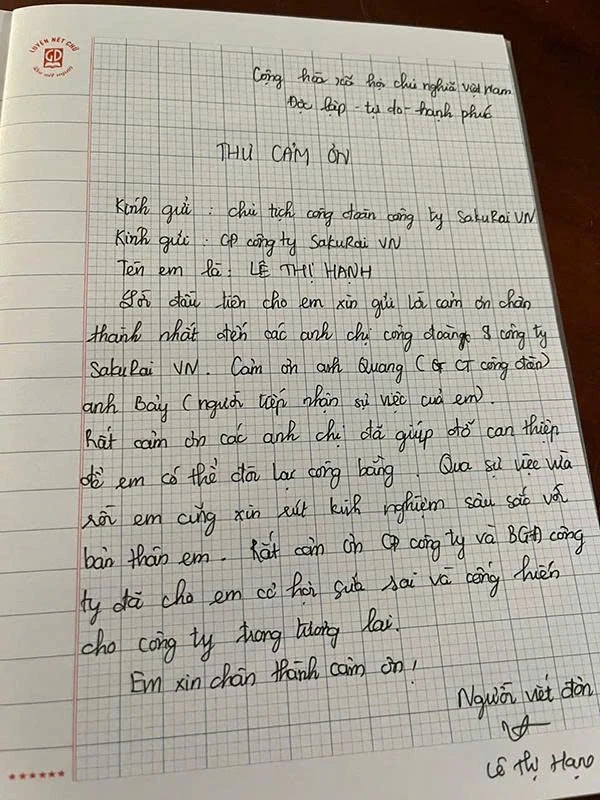 LUYỆN NÉT CHỮ
GD
Rèn nết người
Cộng hòa xã hội chủ nghĩa việt Nam
Độc lập - tự do - hạnh phúc
THƯ CẢM ƠN
Kính gửi : chủ tịch công đoàn công ty SakuRai VN
Kính gửi : CP công ty SakuRai VN
Tên em là : LÊ THỊ HẠNH
Lời đầu tiên cho em xin gửi lời cảm ơn chân
thành nhất đến các anh chị công đoàn công ty
SakuRai VN. Cảm ơn anh Quang ( CT công đoàn)
anh Bảy ( người tiếp nhận sự việc của em).
Rất cảm ơn các anh chị đã giúp đỡ can thiệp
để em có thể đòi lại công bằng. Qua sự việc vừa
rồi em cũng xin rút kinh nghiệm sâu sắc với
bản thân em. Rất cảm ơn CP công ty và BGĐ công
ty đã cho em cơ hội sửa sai và cống hiến
cho công ty trong tương lai.
Em xin chân thành cảm ơn!
Người viết đơn
Lê Thị Hạnh